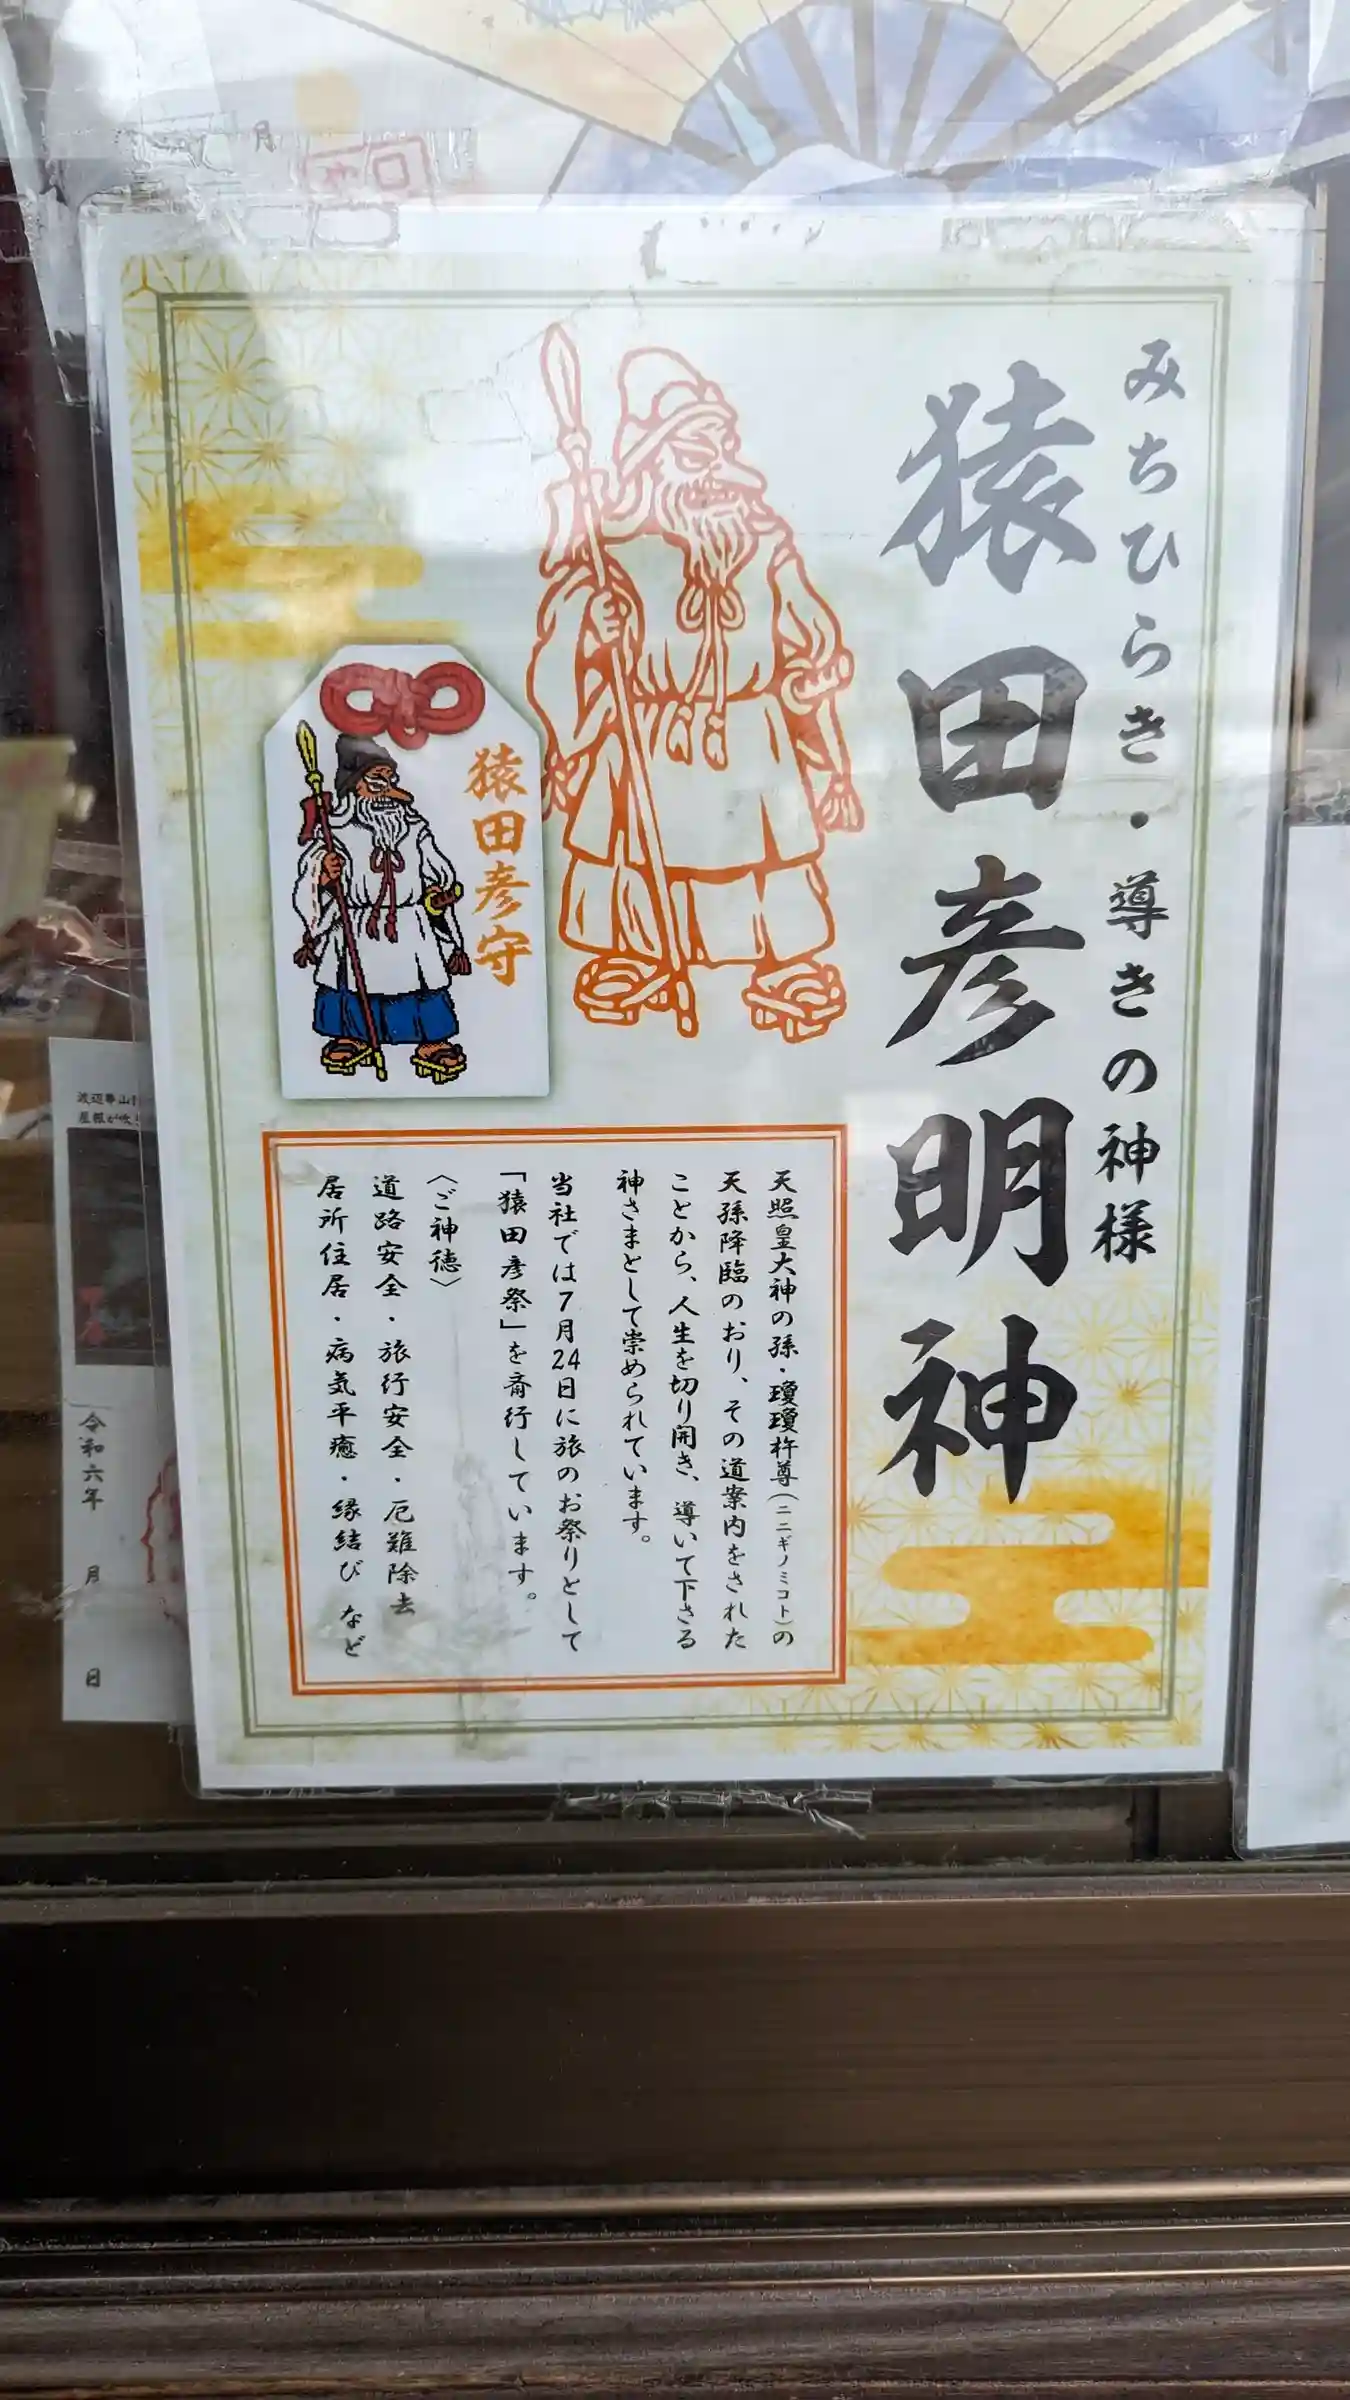 みちひらき・導きの神様
猿田彦明神
猿田彦守
天照皇大神の孫・瓊瓊杵尊(ニニギノミコト)の
天孫降臨のおり、その道案内をされた
ことから、人生を切り開き、導いて下さる
神さまとして崇められています。
当社では7月24日に旅のお祭りとして
「猿田彦祭」を斎行しています。
〈ご神徳〉
道路安全・旅行安全・厄難除去
居所住居・病気平癒・縁結び など
令和六年 月 日
月